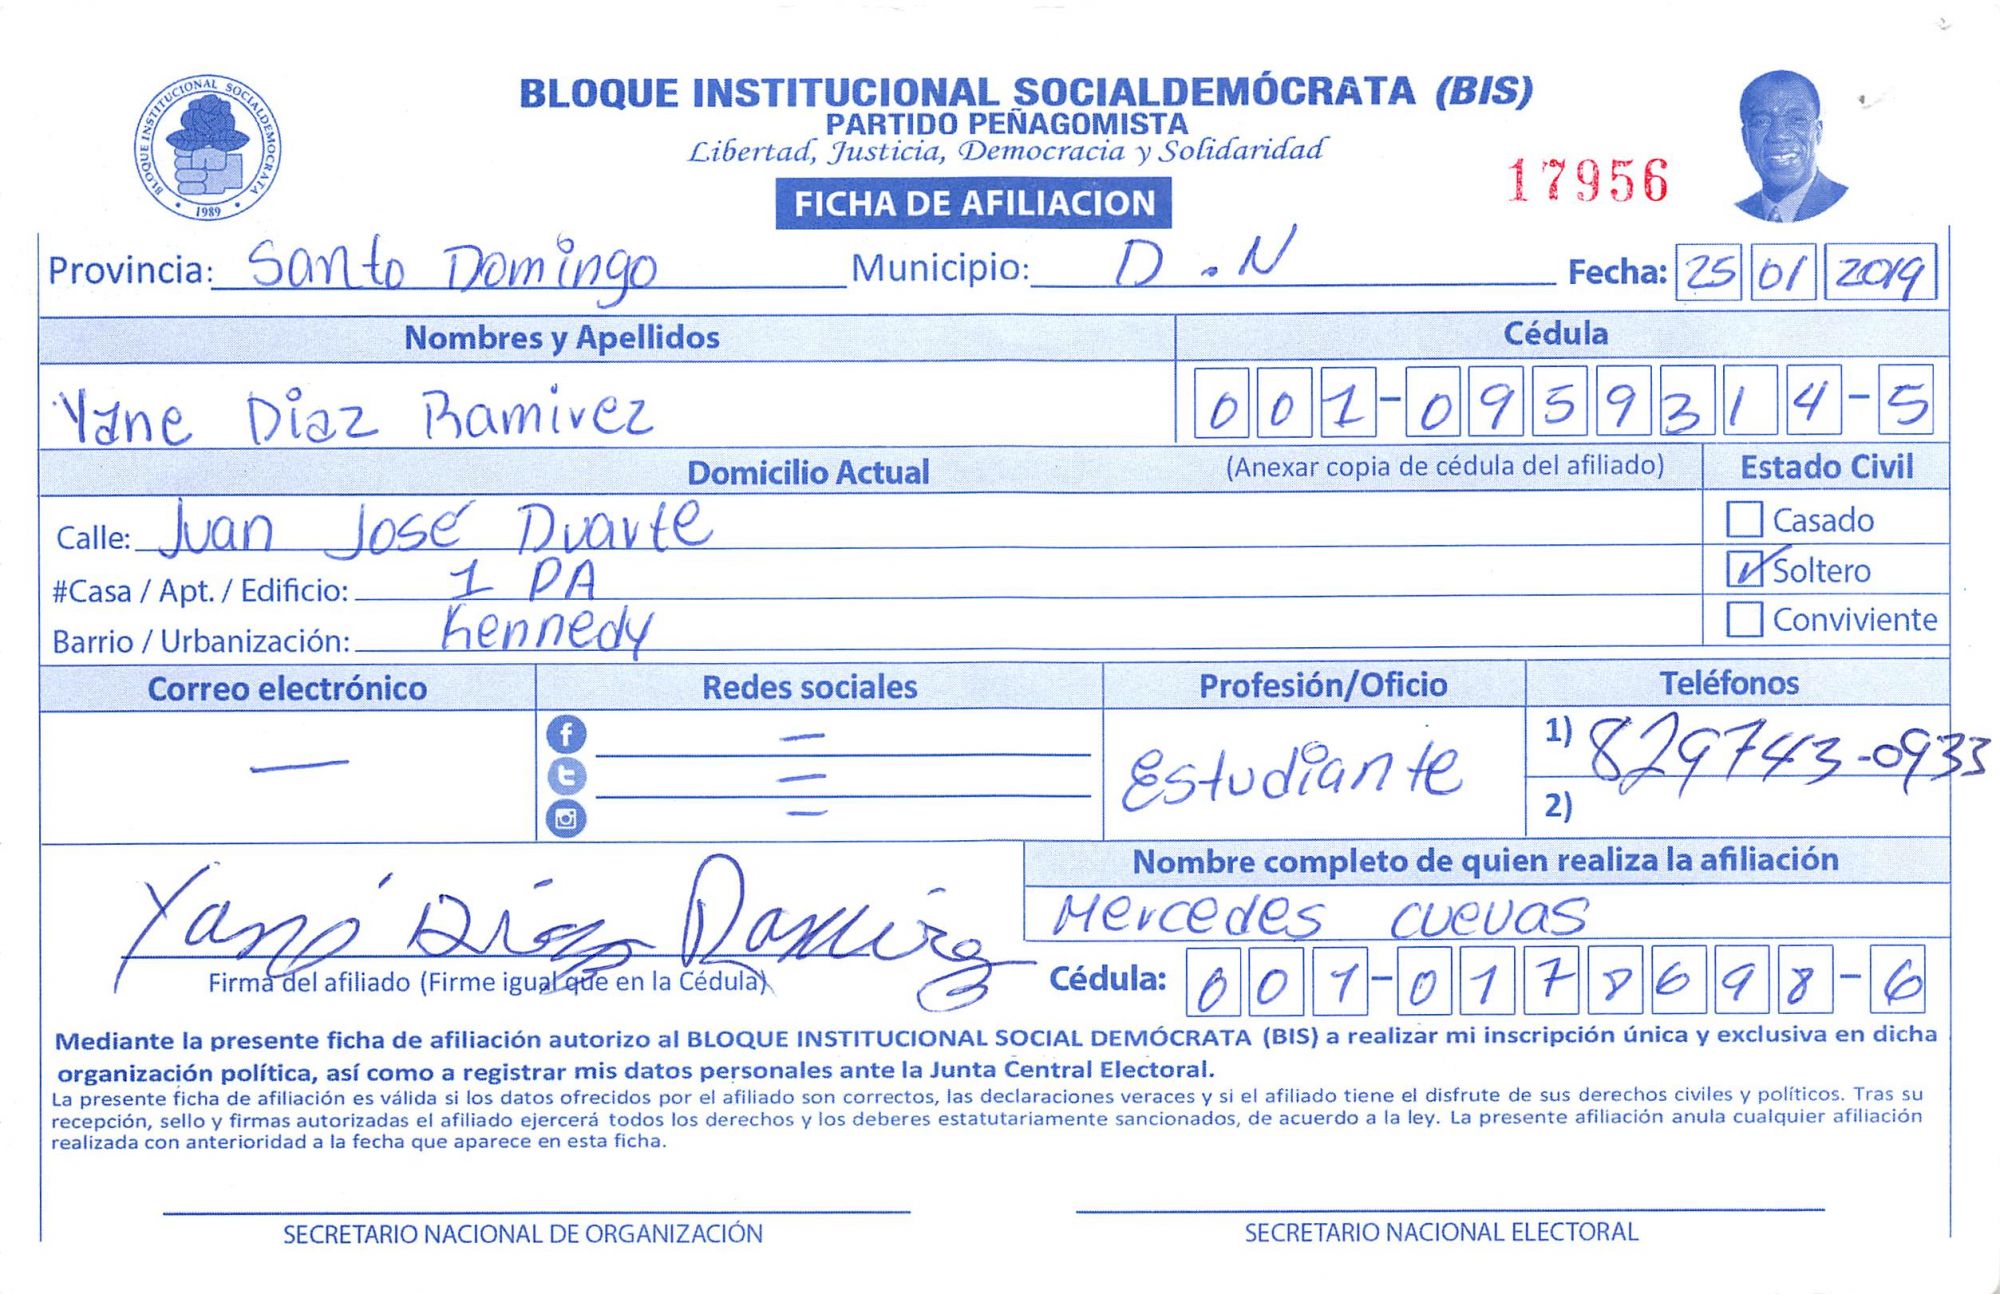 BLOQUE INSTITUCIONAL SOCIALDEMOCRATA
1989
BLOQUE INSTITUCIONAL SOCIALDEMÓCRATA (BIS)
PARTIDO PEÑAGOMISTA
Libertad, Justicia, Democracia y Solidaridad
17956
FICHA DE AFILIACION
Provincia: Santo Domingo Municipio: D.N Fecha: 25 01 2019
Nombres y Apellidos Cédula
Yane Diaz Ramirez 001-0959314-5
Domicilio Actual (Anexar copia de cédula del afiliado) Estado Civil
Calle: Juan José Duarte Casado
#Casa / Apt. / Edificio: 1 PA Soltero
Barrio / Urbanización: Kennedy Conviviente
Correo electrónico Redes sociales Profesión/Oficio Teléfonos
— — — — Estudiante 1) 829743-0933
2)
Nombre completo de quien realiza la afiliación
Mercedes cuevas
Yane Díaz Ramirez
Firma del afiliado (Firme igual que en la Cédula) Cédula: 001-0178698-6
Mediante la presente ficha de afiliación autorizo al BLOQUE INSTITUCIONAL SOCIAL DEMÓCRATA (BIS) a realizar mi inscripción única y exclusiva en dicha
organización política, así como a registrar mis datos personales ante la Junta Central Electoral.
La presente ficha de afiliación es válida si los datos ofrecidos por el afiliado son correctos, las declaraciones veraces y si el afiliado tiene el disfrute de sus derechos civiles y políticos. Tras su
recepción, sello y firmas autorizadas el afiliado ejercerá todos los derechos y los deberes estatutariamente sancionados, de acuerdo a la ley. La presente afiliación anula cualquier afiliación
realizada con anterioridad a la fecha que aparece en esta ficha.
SECRETARIO NACIONAL DE ORGANIZACIÓN SECRETARIO NACIONAL ELECTORAL